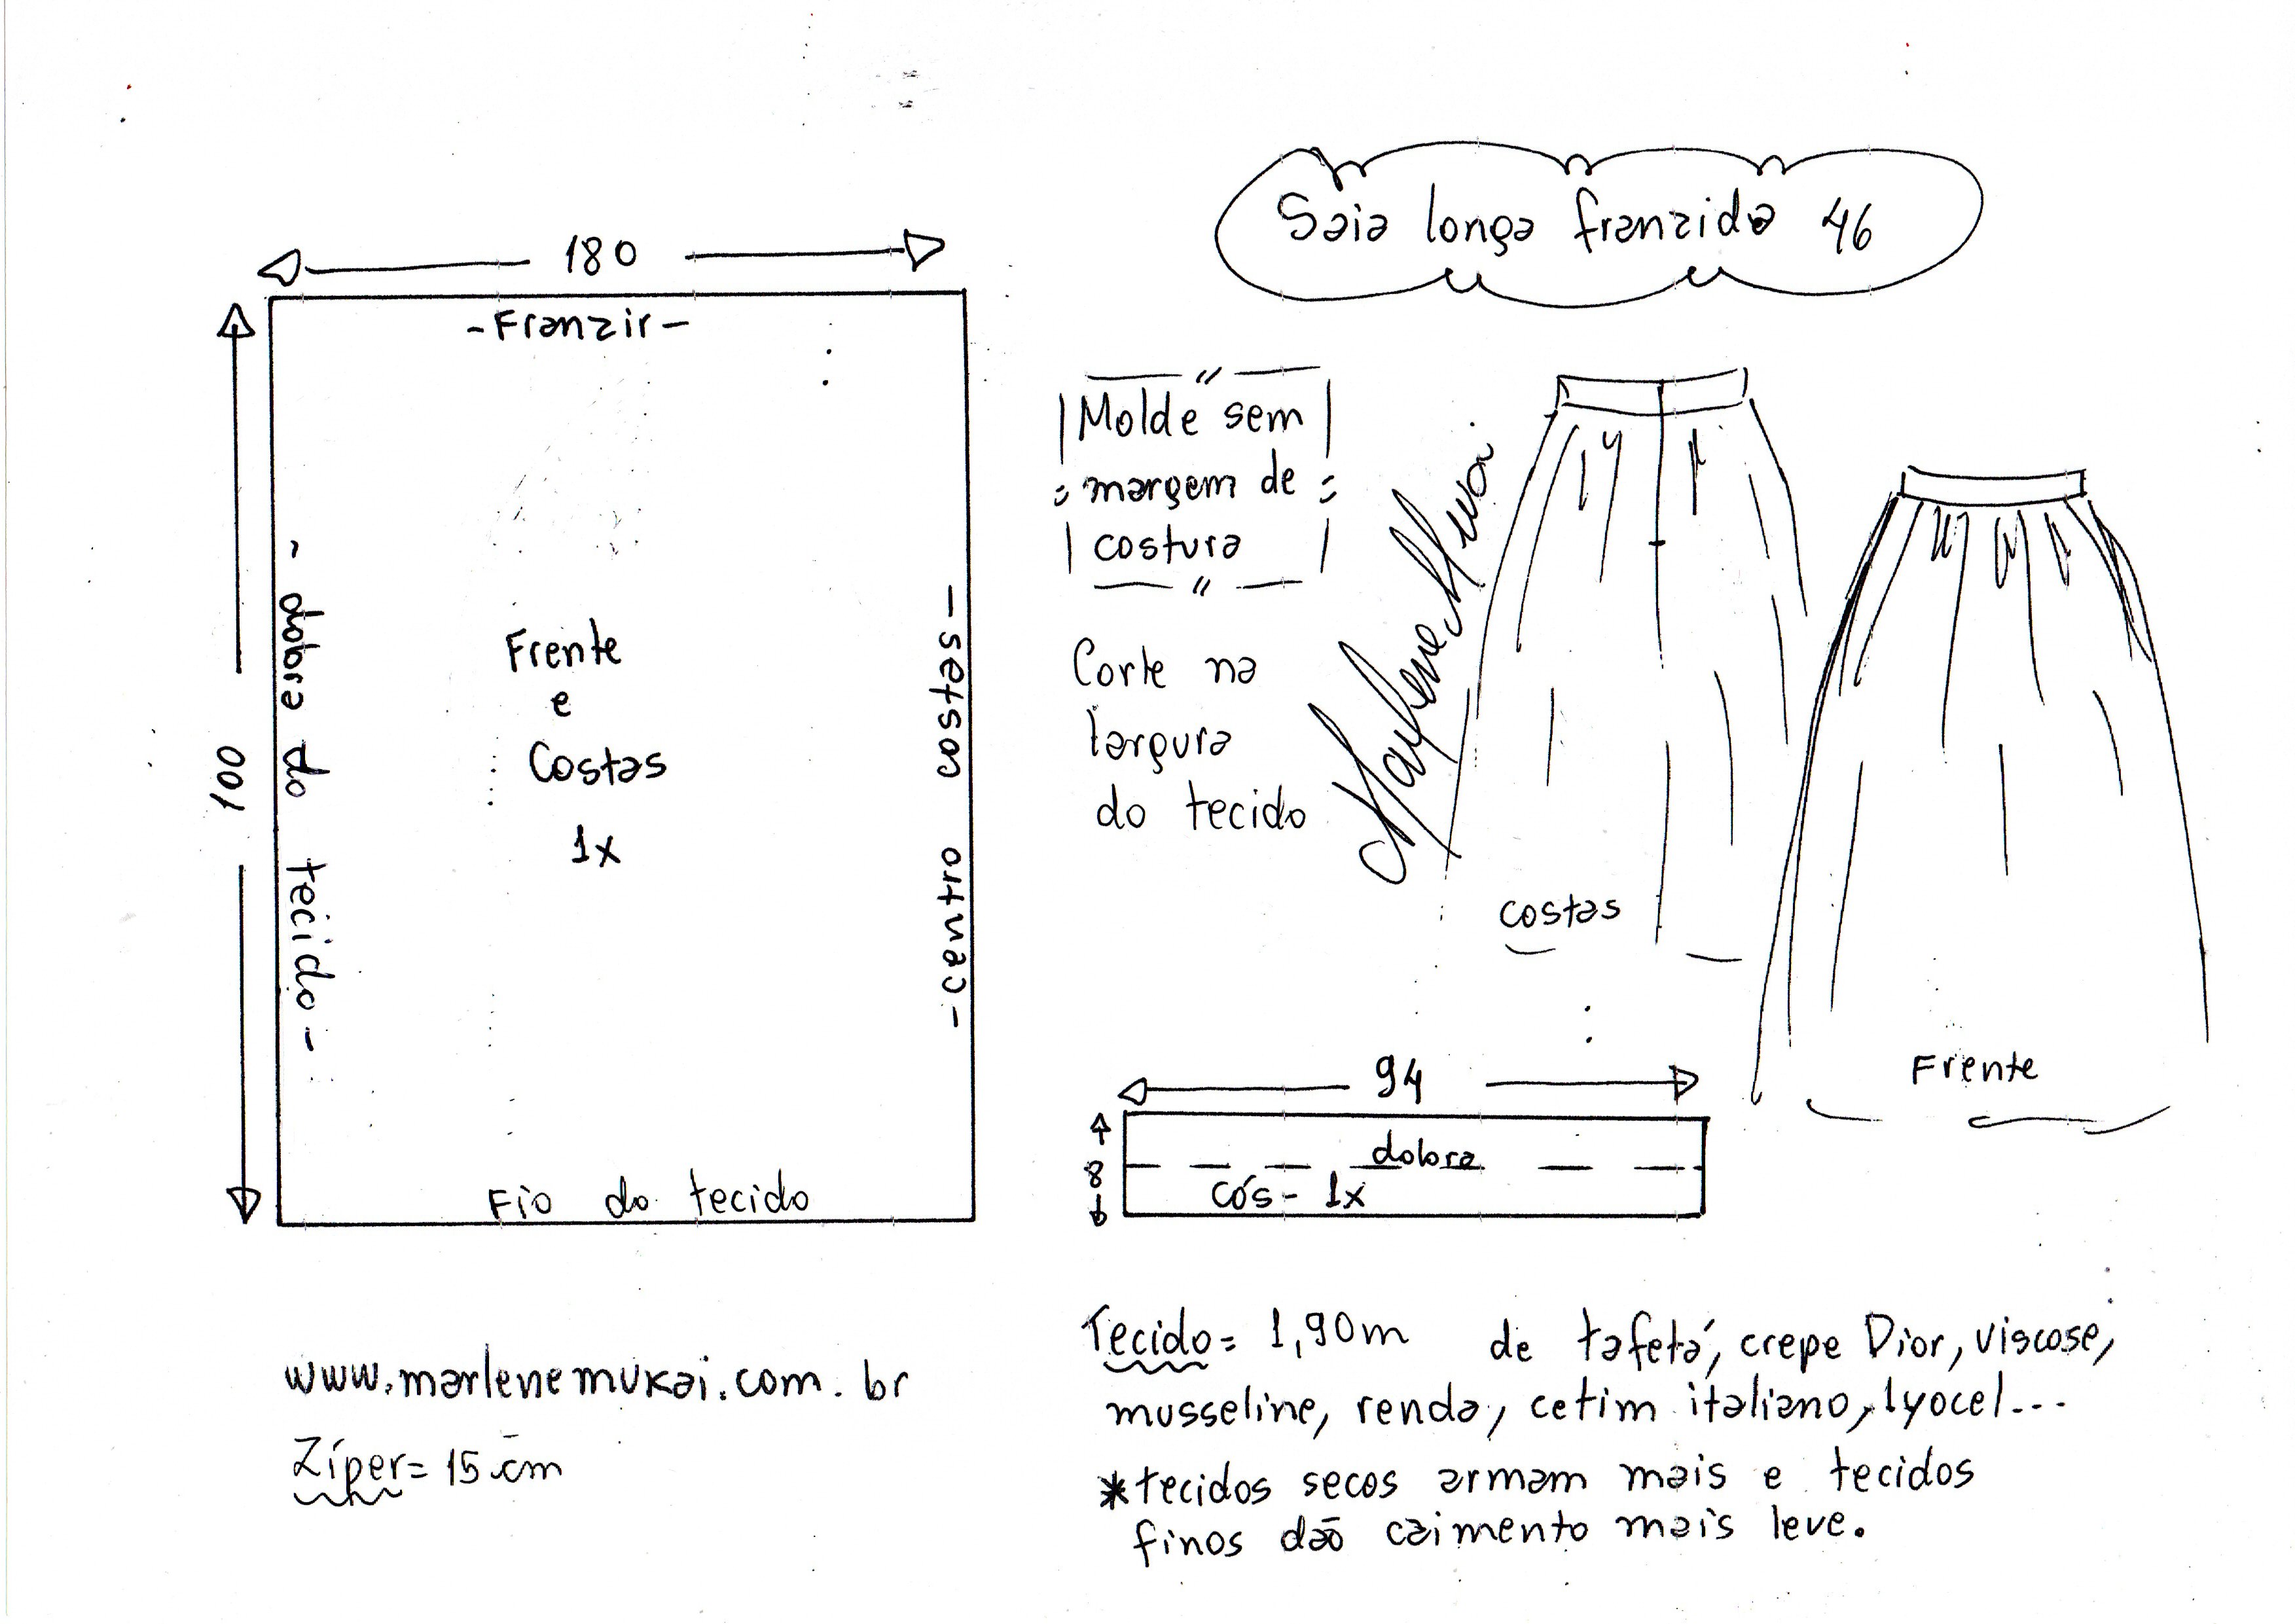 Saia longa franzida 46
180
-Franzir-
100
- dobra do tecido -
Frente
e
Costas
1x
- centro costas -
Fio do tecido
Molde sem
margem de
costura
Corte na
largura
do tecido
Marlene Mukai
costas
Frente
94
8
dobra
cós - 1x
www.marlenemukai.com.br
Zíper = 15 cm
Tecido = 1,90m de tafetá, crepe Dior, viscose,
musseline, renda, cetim italiano, lyocel...
*tecidos secos armam mais e tecidos
finos dão caimento mais leve.